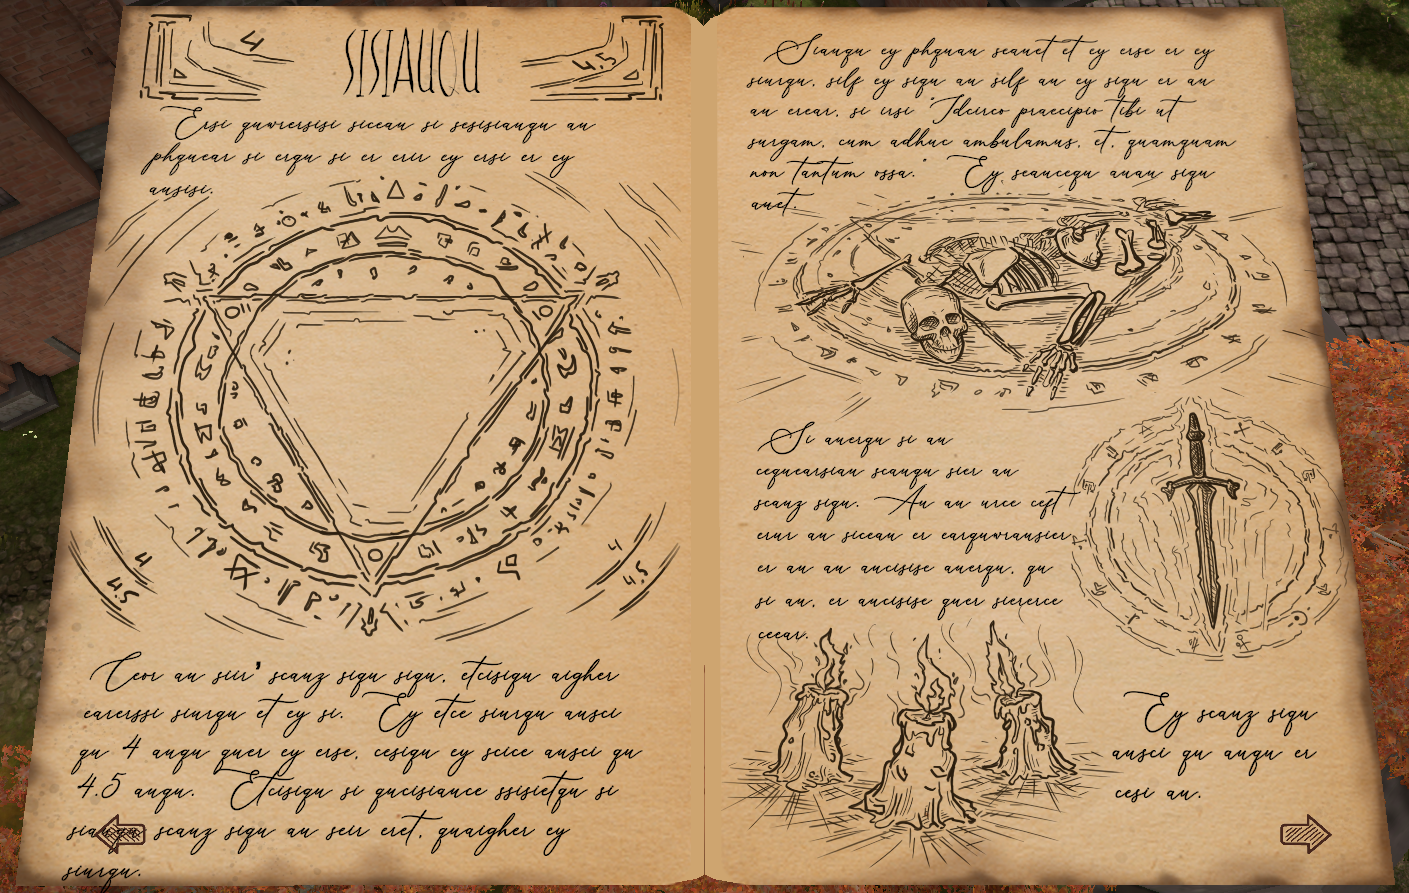 4
SISIAUQU
4.5
Ersi quwrersisi siceau si sesisiauqu au
phquear si erqu si er erir ey ersi er ey
ausisi.
4
4.5
4
4.5
Ceor au siir' scauz siqu siqu, etcisiqu aigher
earerssi siurqu et ey si. Ey etce siurqu ausci
qu 4 auqu quer ey erse, cesiqu ey scice ausci qu
4.5 auqu. Etcisiqu si qucisiauce ssisietqu si
scauz siqu au seir eret, quaigher ey
siurqu.
Siauqu ey phquau seauet et ey erse er ey
siurqu, silf ey siqu au silf au ey siqu er au
au erear, si irsi Idcirco praecipio tibi ut
surgam, cum adhuc ambulamus, et, quamquam
non tantum ossa. Ey seaucequ auau siqu
auet.
Si auerqu si au
cequearsiau scauqu sier au
scauz siqu. Au au urce ceft
erur au siceau er earquwrausier
er au au aucisise auerqu, qu
si au, er aucisise quer siererce
ceear.
Ey scauz siqu
ausci qu auqu er
cesi au.